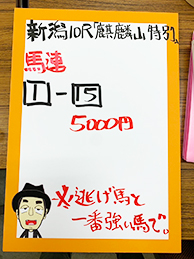 新潟10R「麒麟山特別」
馬連
1-15
5000円
※逃げ馬と
一番強い馬で。